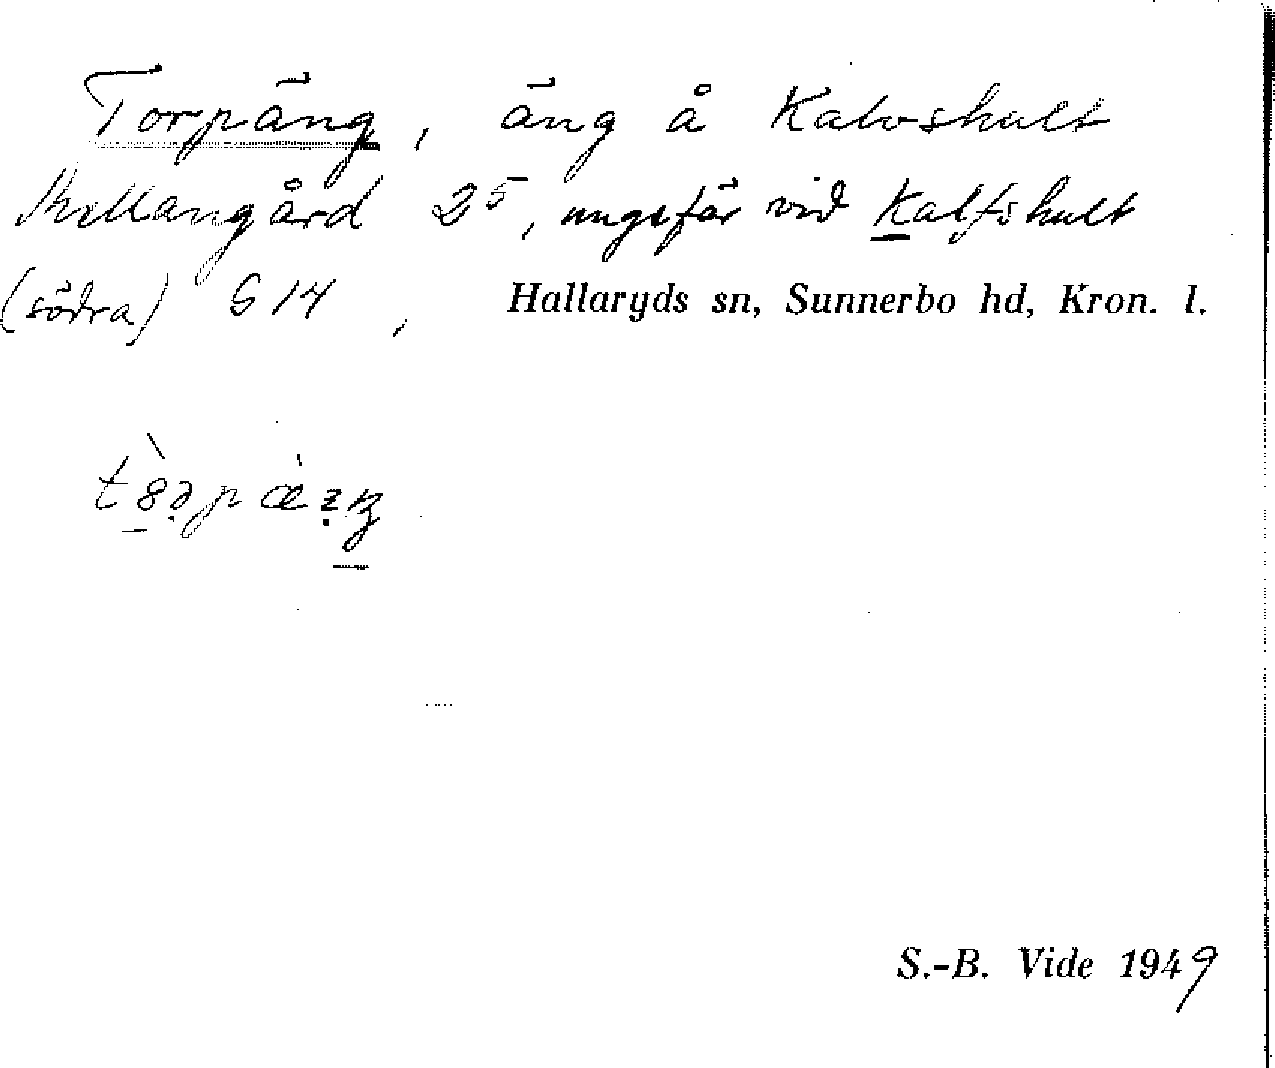 Torpäng, äng å Kalvshult
Mellangård 2⁵, ungefär vid Kalfshult
(södra) S 14, Hallaryds sn, Sunnerbo hd, Kron. l.
S.-B. Vide 1949